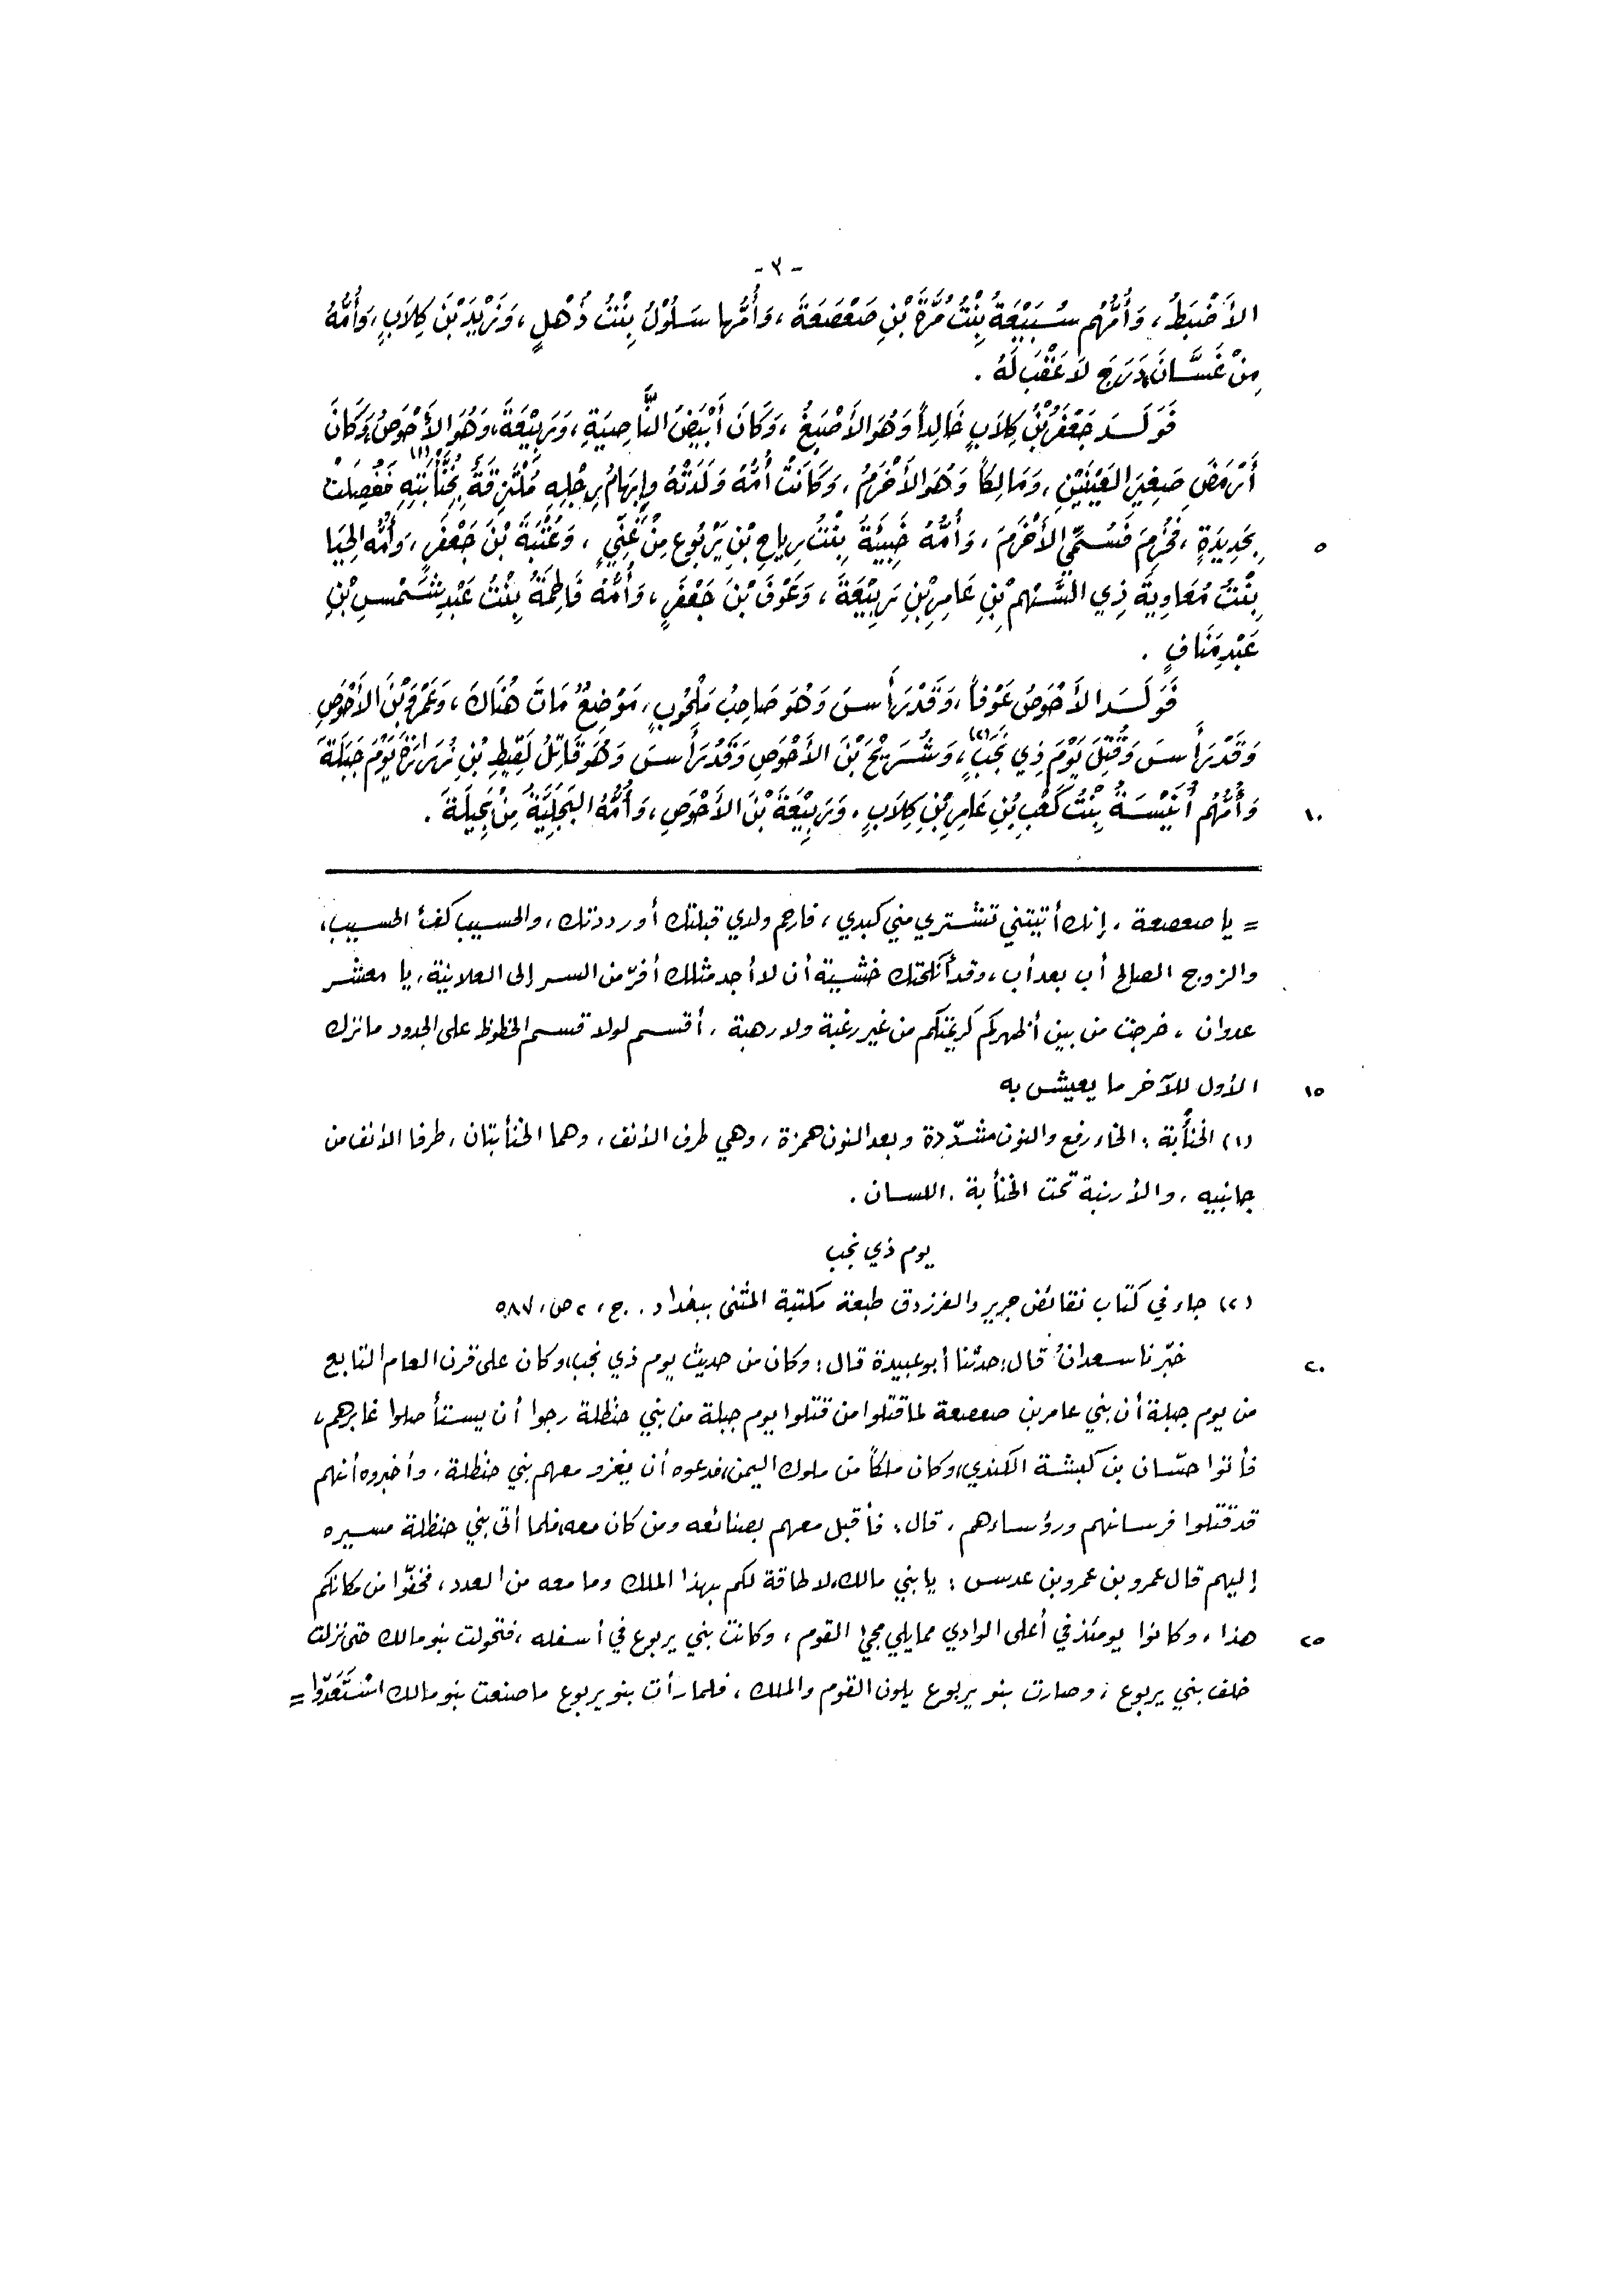 -٣-
الأَضْبَطُ، وَأُمُّهُم سُبَيْعَةُ بِنْتُ مُرَّةَ بْنِ صَعْصَعَةَ، وَأُمُّها سَلُوْلُ بِنْتُ ذُهْلٍ، وَزَيْدَ بْنَ كِلَابٍ، وَأُمُّهُ
مِنْ غَسَّانَ، دَرَجَ لَا عَقْبَ لَهُ .
فَوَلَدَ جَعْفَرُ بْنُ كِلَابٍ خَالِداً وَهُوَ الأَصْبَغُ، وَكَانَ أَبْيَضَ النَّاصِيَةِ، وَرَبِيْعَةَ، وَهُوَ الأَحْوَصُ، وَكَانَ
أَرْمَصَ صَغِيْرَ العَيْنَيْنِ، وَمَالِكاً وَهُوَ الأَخْرَمُ، وَكَانَتْ أُمُّهُ وَلَدَتْهُ وإِبْهَامُ رِجْلِهِ مُلْتَزِقَةٌ بِخُنَّأْبَتِهِ (١) فَفُصِلَتْ
٥ بِحَدِيْدَةٍ، فَخُرِمَ فَسُمِّيَ الأَخْرَمَ، وَأُمُّهُ خَبِيْئَةُ بِنْتُ رِيَاحِ بْنِ يَرْبُوعٍ مِنْ غَنِيٍّ، وَعُتْبَةَ بْنَ جَعْفَرٍ، وَأُمُّهُ الحَيَا
بِنْتُ مُعَاوِيَةَ ذِي السَّهْمِ بْنِ عَامِرِ بْنِ رَبِيْعَةَ، وَعَوْفَ بْنَ جَعْفَرٍ، وَأُمُّهُ فَاطِمَةُ بِنْتُ عَبْدِ شَمْسِ بْنِ
عَبْدِ مَنَافٍ .
فَوَلَدَ الأَحْوَصُ عَوْفاً، وَقَدْ رَأَسَ وَهُوَ صَاحِبُ مَلْحُوبٍ، مَوْضِعٌ مَاتَ هُنَاكَ، وَعَمْرَو بْنَ الأَحْوَصِ
وَقَدْ رَأَسَ وَقُتِلَ يَوْمَ ذِي نَجَبٍ (٢)، وَشُرَيْحَ بْنَ الأَحْوَصِ وَقَدْ رَأَسَ وَهُوَ قَاتِلُ لَقِيْطِ بْنِ زُرَارَةَ يَوْمَ جَبَلَةَ
١٠ وَأُمُّهُم أُنَيْسَةُ بِنْتُ كَعْبِ بْنِ عَامِرِ بْنِ كِلَابٍ، وَرَبِيْعَةَ بْنَ الأَحْوَصِ، وَأُمُّهُ البَجَلِيَّةُ مِنْ بَجِيْلَةَ .
= يا صعصعة، إنك أتيتني تشتري مني كبدي، فارحم ولدي قبلتك أو رددتك، والحسيب كفء الحسيب،
والزوج الصالح أب بعد أب، وقد أنكحتك خشية أن لا أجد مثلك أفرّ من السر إلى العلانية، يا معشر
عدوان، خرجت من بين أظهركم كريمتكم من غير رغبة ولا رهبة، أقسم لولا قسم الحظوظ على الجدود ما ترك
١٥ الأول للآخر ما يعيش به
(١) الخنّأبة : الخاء رفع والنون مشدّدة وبعد النون همزة، وهي طرف الأنف، وهما الخنأبتان، طرفا الأنف من
جانبيه، والأرنبة تحت الخنأبة . اللسان .
يوم ذي نجب
(٢) جاء في كتاب نقائض جرير والفرزدق طبعة مكتبة المثنى ببغداد . . ج، ٢ ص، ٥٨٧
٢٠ خبّرنا سعدانُ قال: حدثنا أبو عبيدة قال: وكان من حديث يوم ذي نجب، وكان على قرن العام التابع
من يوم جبلة أن بني عامر بن صعصعة لما قتلوا من قتلوا يوم جبلة من بني حنظلة رجوا أن يستأصلوا غابرهم،
فأتوا حسّان بن كبشة الكندي، وكان ملكاً من ملوك اليمن، فدعوه أن يغزو معهم بني حنظلة، وأخبروه أنهم
قد قتلوا فرسانهم ورؤساءهم، قال: فأقبل معهم بصنائعه ومن كان معه، فلما أتى بني حنظلة مسيره
إليهم قال عمرو بن عمرو بن عدس : يا بني مالك، لا طاقة لكم بهذا الملك وما معه من العدد، فخفّوا من مكانكم
٢٥ هذا، وكانوا يومئذ في أعلى الوادي مما يلي مجيء القوم، وكانت بني يربوع في أسفله، فتحولت بنو مالك حتى نزلت
خلف بني يربوع، وصارت بنو يربوع يلون القوم والملك، فلما رأت بنو يربوع ما صنعت بنو مالك اسْتَعَدّوا =